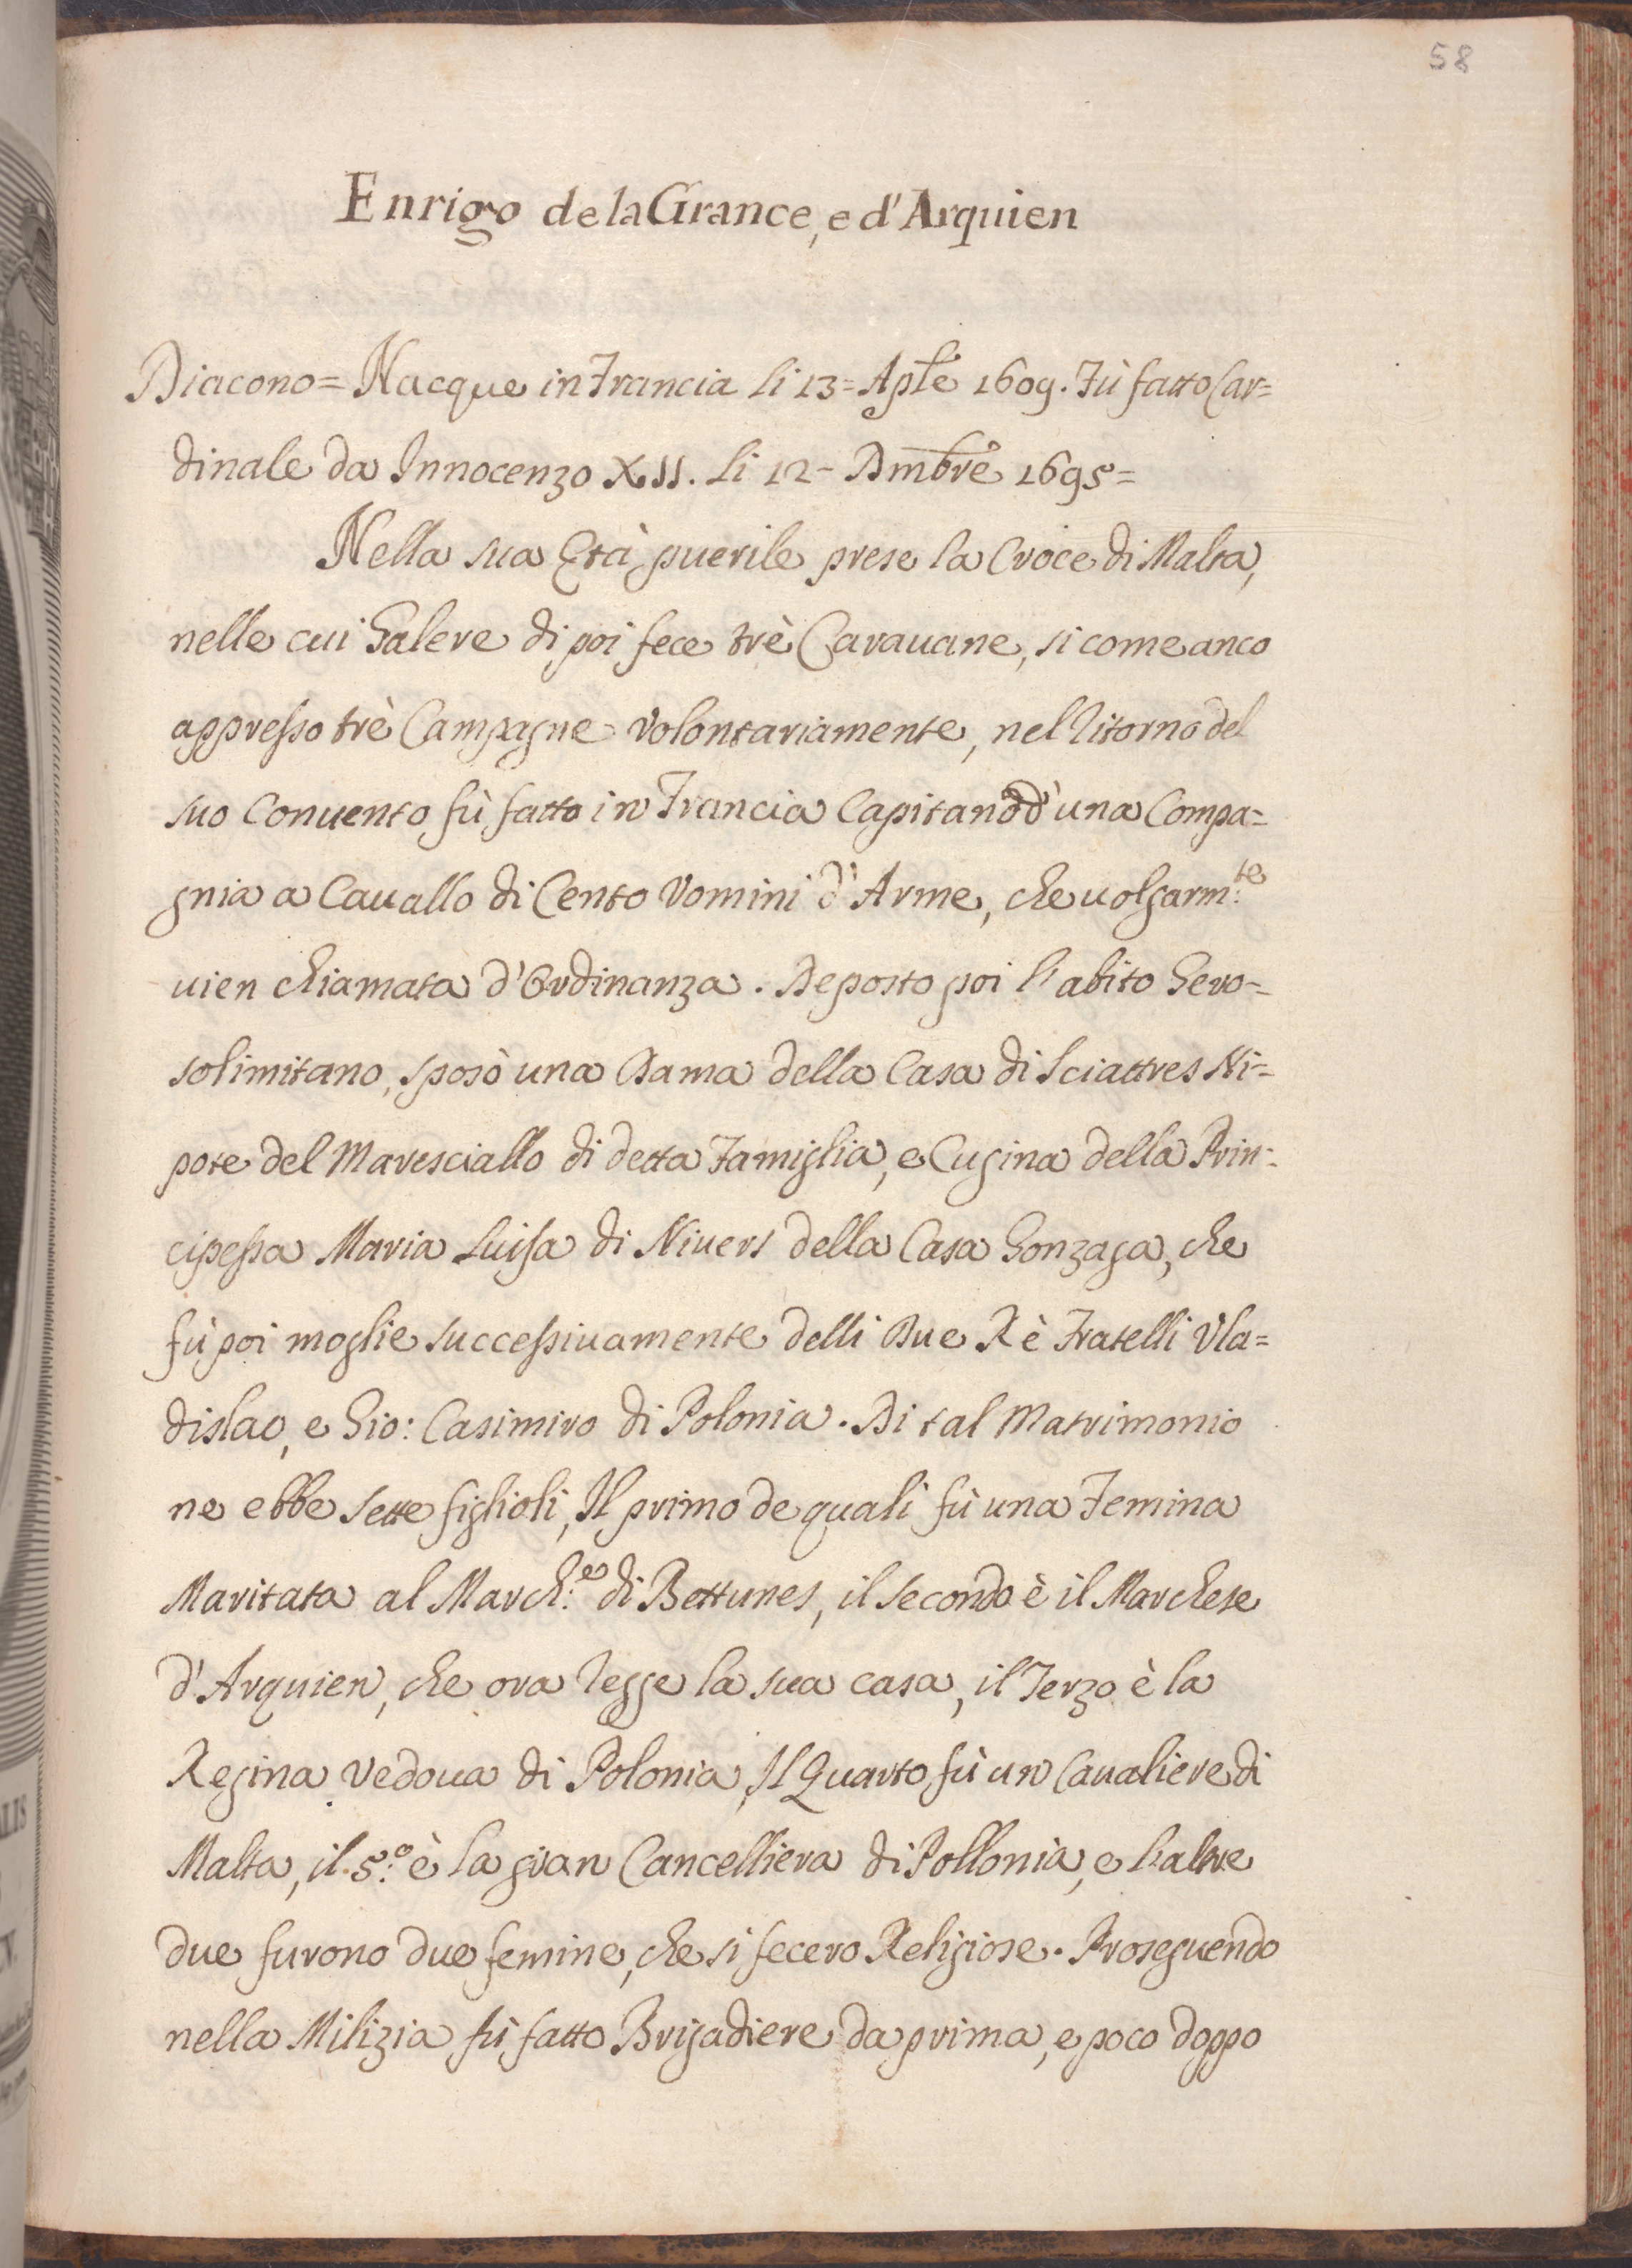 58
Enrigo de la Grance, e d'Arquien
Diacono= Nacque in Francia li 13= Aple 1609. Fù fatto Car=
dinale da Innocenzo XII. li 12- Dmbre 1695=
Nella sua Età puerile prese la Croce di Malta,
nelle cui Galere di poi fece trè Carauane, si come anco
appresso trè Campagne volontariamente, nel ritorno del
suo Conuento fù fatto in Francia Capitano d'una Compa=
gnia a Cauallo di Cento Vomini d'Arme, che uolgarm:te
uien chiamata d'Ordinanza. Deposto poi l'abito Gero=
solimitano, sposò una Dama della Casa di Sciattres Ni=
pote del Maresciallo di detta Famiglia, e Cugina della Prin=
cipessa Maria Luisa di Niuers della Casa Gonzaga, che
fù poi moglie successiuamente delli Due Rè Fratelli Vla=
dislao, e Gio: Casimiro di Polonia. Di tal Matrimonio
ne ebbe sette figlioli, Il primo de quali fù una Femina
Maritata al March:e di Bettunes, il secondo è il Marchese
d'Arquien, che ora regge la sua casa, il Terzo è la
Regina Vedoua di Polonia, Il Quarto fù un Caualiere di
Malta, il 5:o è la gran Cancelliera di Pollonia, e l'altre
due furono due femine, che si fecero Religiose. Proseguendo
nella Milizia fù fatto Brigadiere da prima, e poco doppo